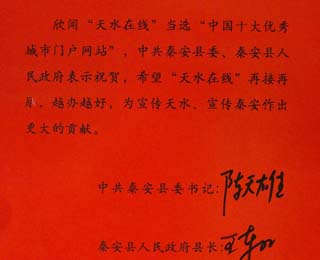 欣闻“天水在线”当选“中国十大优秀
城市门户网站”，中共秦安县委、秦安县人
民政府表示祝贺，希望“天水在线”再接再
厉，越办越好，为宣传天水、宣传秦安作出
更大的贡献。
中共秦安县委书记：陈天雄
秦安县人民政府县长：王东红